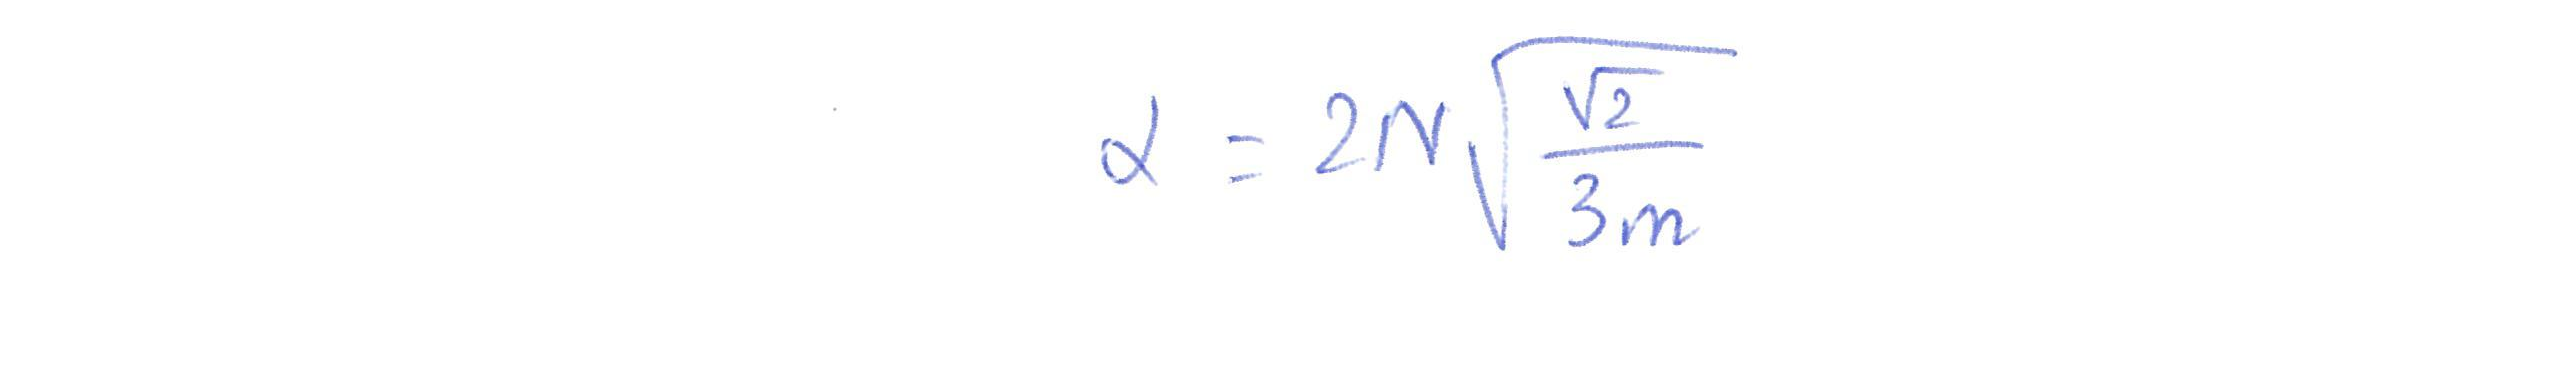 α = 2N√(√2/3m)